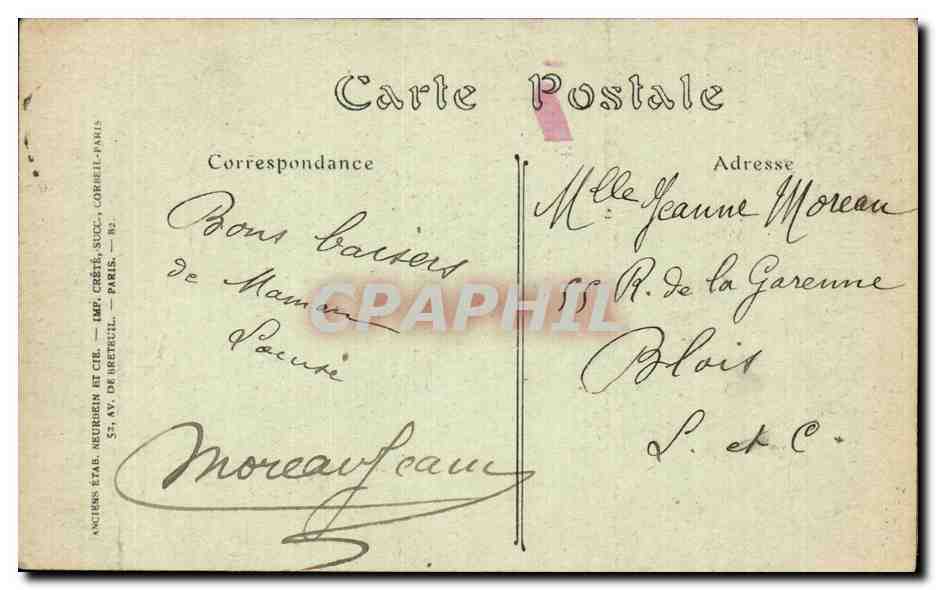 Carte Postale
Correspondance
Bons baisers
de Maman
Louise
Moreau Jeanne
Adresse
Mlle Jeanne Moreau
55 R. de la Garenne
Blois
L. et C.
ANCIENS ÉTAB. NEURDEIN ET CIE. — IMP. CRÉTÉ, SUCC., CORBEIL-PARIS
52, AV. DE BRETEUIL. — PARIS. — B2.
CPAPHIL